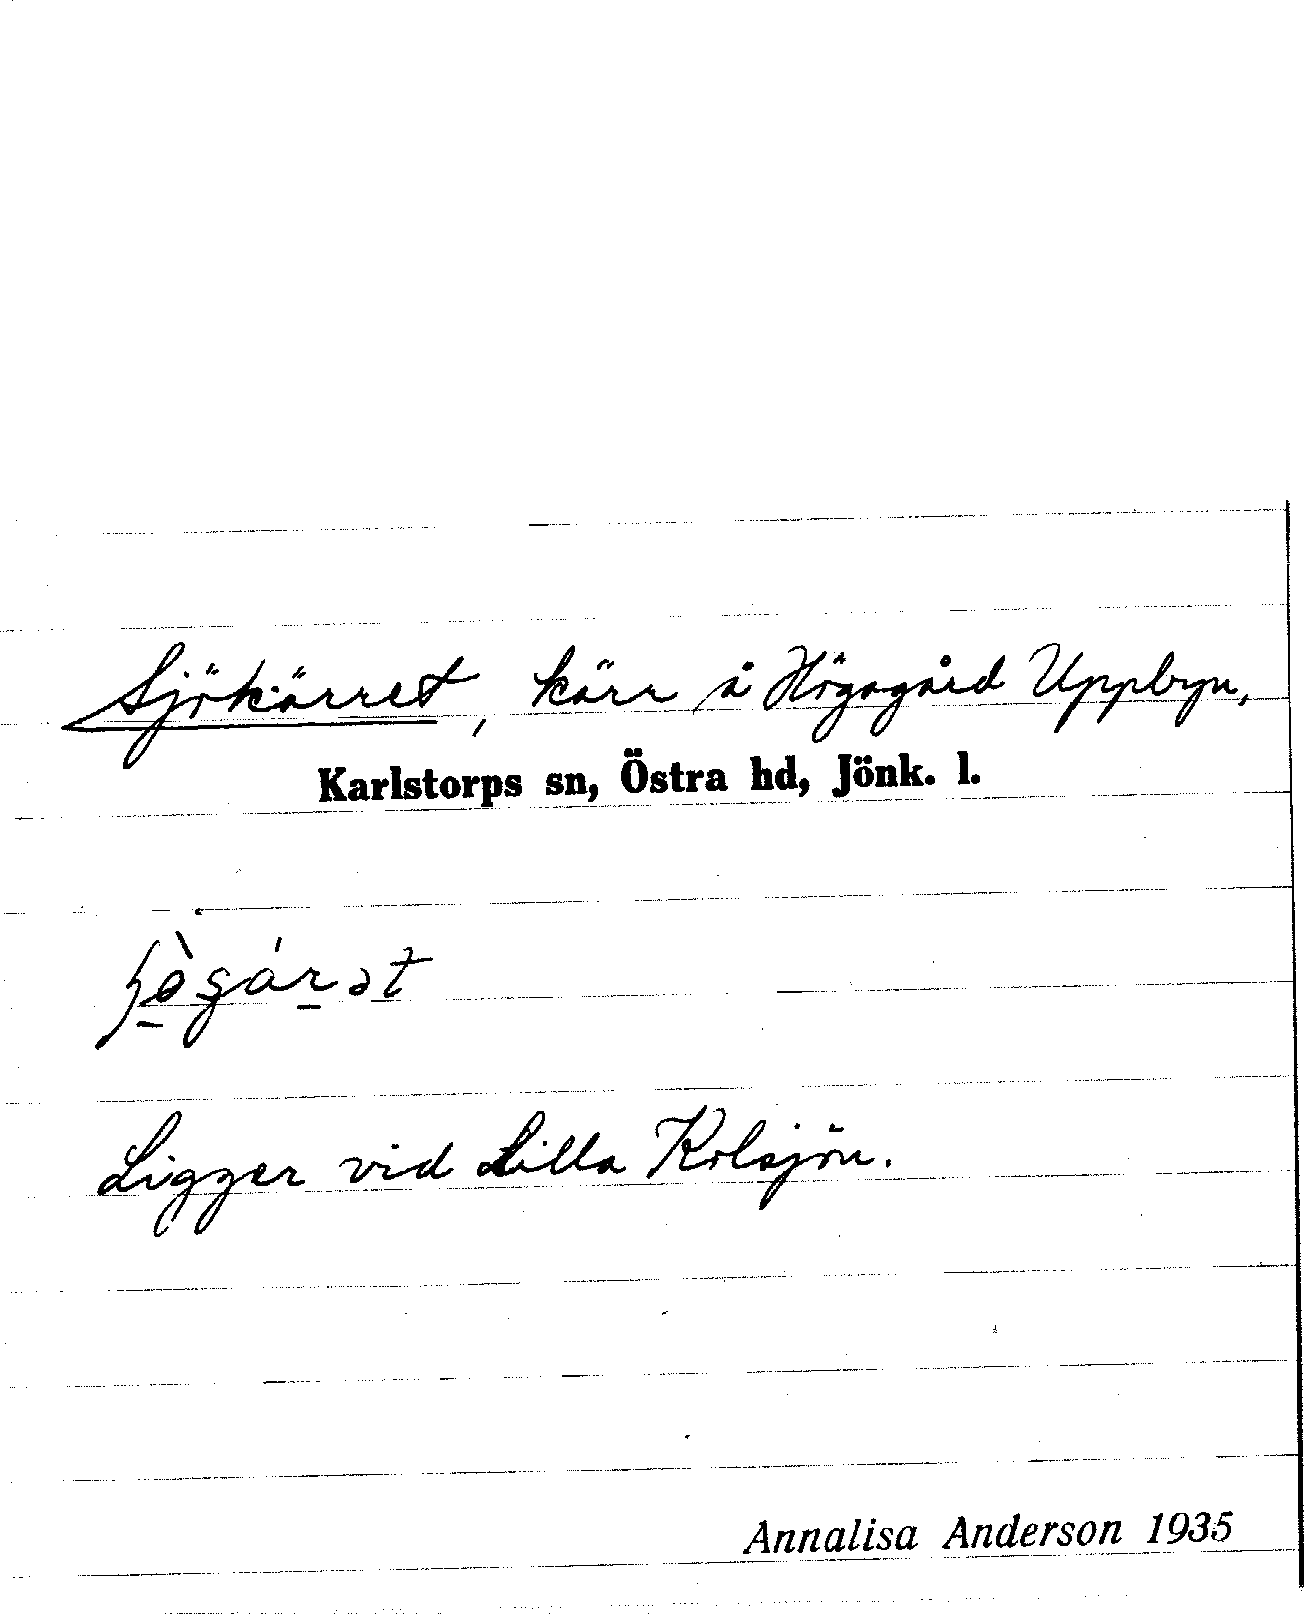 Sjökärret, kärr å Högagärd Uppbyn,
Karlstorps sn, Östra hd, Jönk. l.
Ligger vid Lilla Kolsjön.
Annalisa Anderson 1935